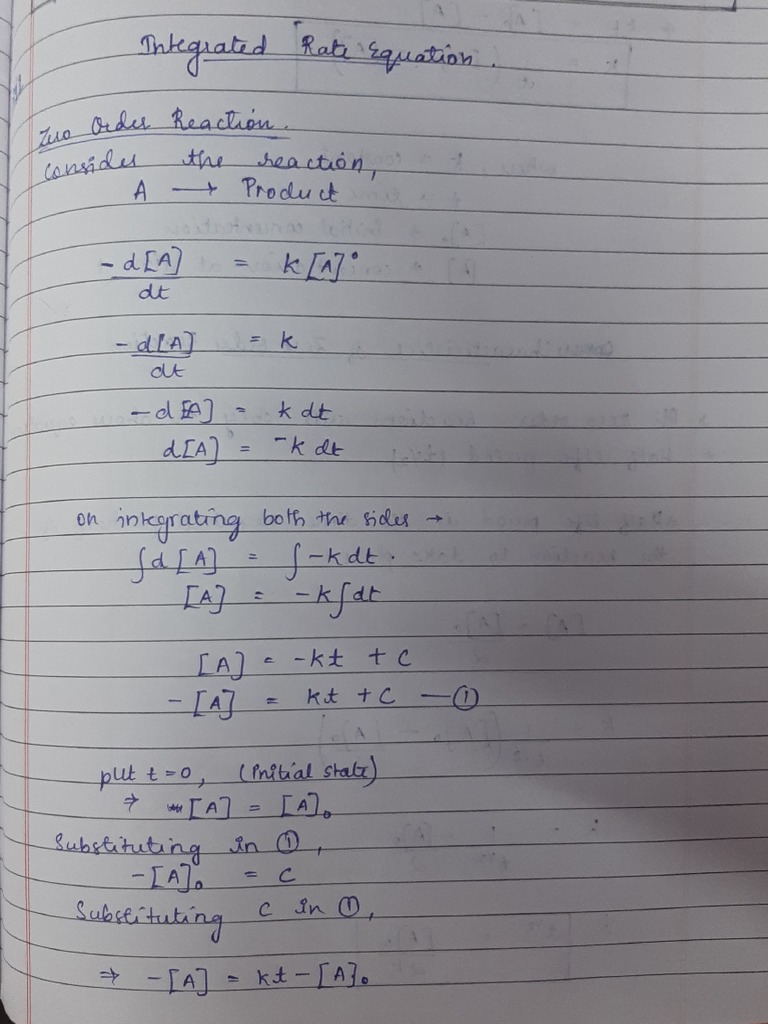 Integrated Rate Equation.
Zero Order Reaction.
Consider the reaction,
A → Product
-d[A]/dt = k[A]°
-d[A]/dt = k
-d[A] = k dt
d[A] = -k dt
On integrating both the sides →
∫d[A] = ∫-k dt.
[A] = -k∫dt
[A] = -kt + C
-[A] = kt + C —①
put t=0, (Initial state)
⇒ [A] = [A]₀
Substituting in ①,
-[A]₀ = C
Substituting C in ①,
⇒ -[A] = kt - [A]₀